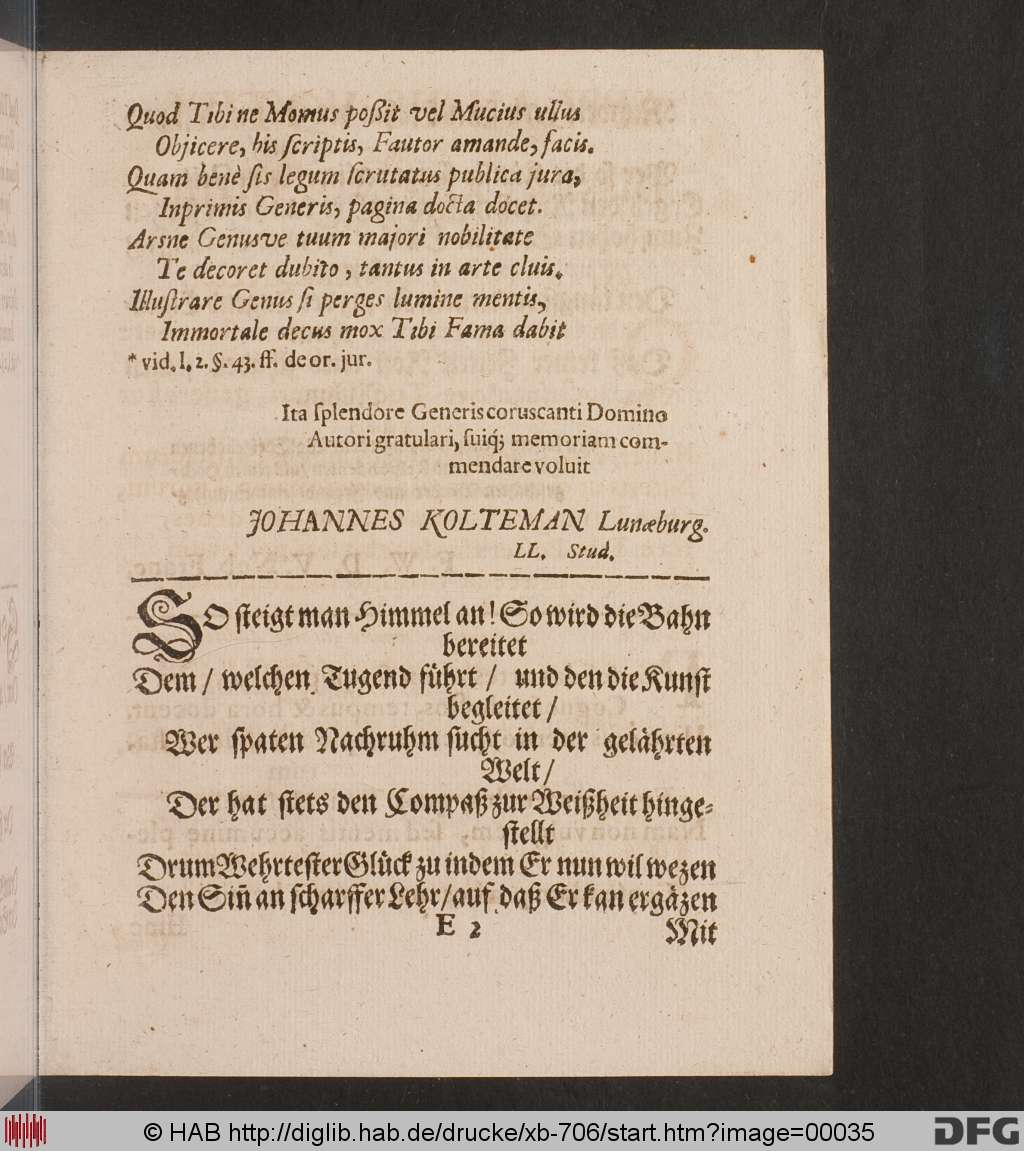 Quod Tibi ne Momus poßit vel Mucius ullus
Objicere, his ſcriptis, Fautor amande, facis.
Quam benè ſis legum ſcrutatus publica jura,
Inprimis Generis, pagina docta docet.
Arsne Genusve tuum majori nobilitate
Te decoret dubito, tantus in arte cluis.
Illuſtrare Genus ſi perges lumine mentis,
Immortale decus mox Tibi Fama dabit
* vid. l. 2. §. 43. ff. de or. jur.
Ita ſplendore Generis coruscanti Domino
Autori gratulari, ſuiq; memoriam com-
mendare voluit
JOHANNES KOLTEMAN Lunæburg.
LL. Stud.
SO ſteigt man Himmel an! So wird die Bahn
bereitet
Dem / welchen Tugend führt / und den die Kunſt
begleitet /
Wer ſpaten Nachruhm ſucht in der gelährten
Welt /
Der hat ſtets den Compaß zur Weißheit hinge-
ſtellt
Drum Wehrteſter Glück zu indem Er nun wil wezen
Den Siñ an ſcharffer Lehr / auf daß Er kan ergäzen
E 2
Mit
© HAB http://diglib.hab.de/drucke/xb-706/start.htm?image=00035
DFG